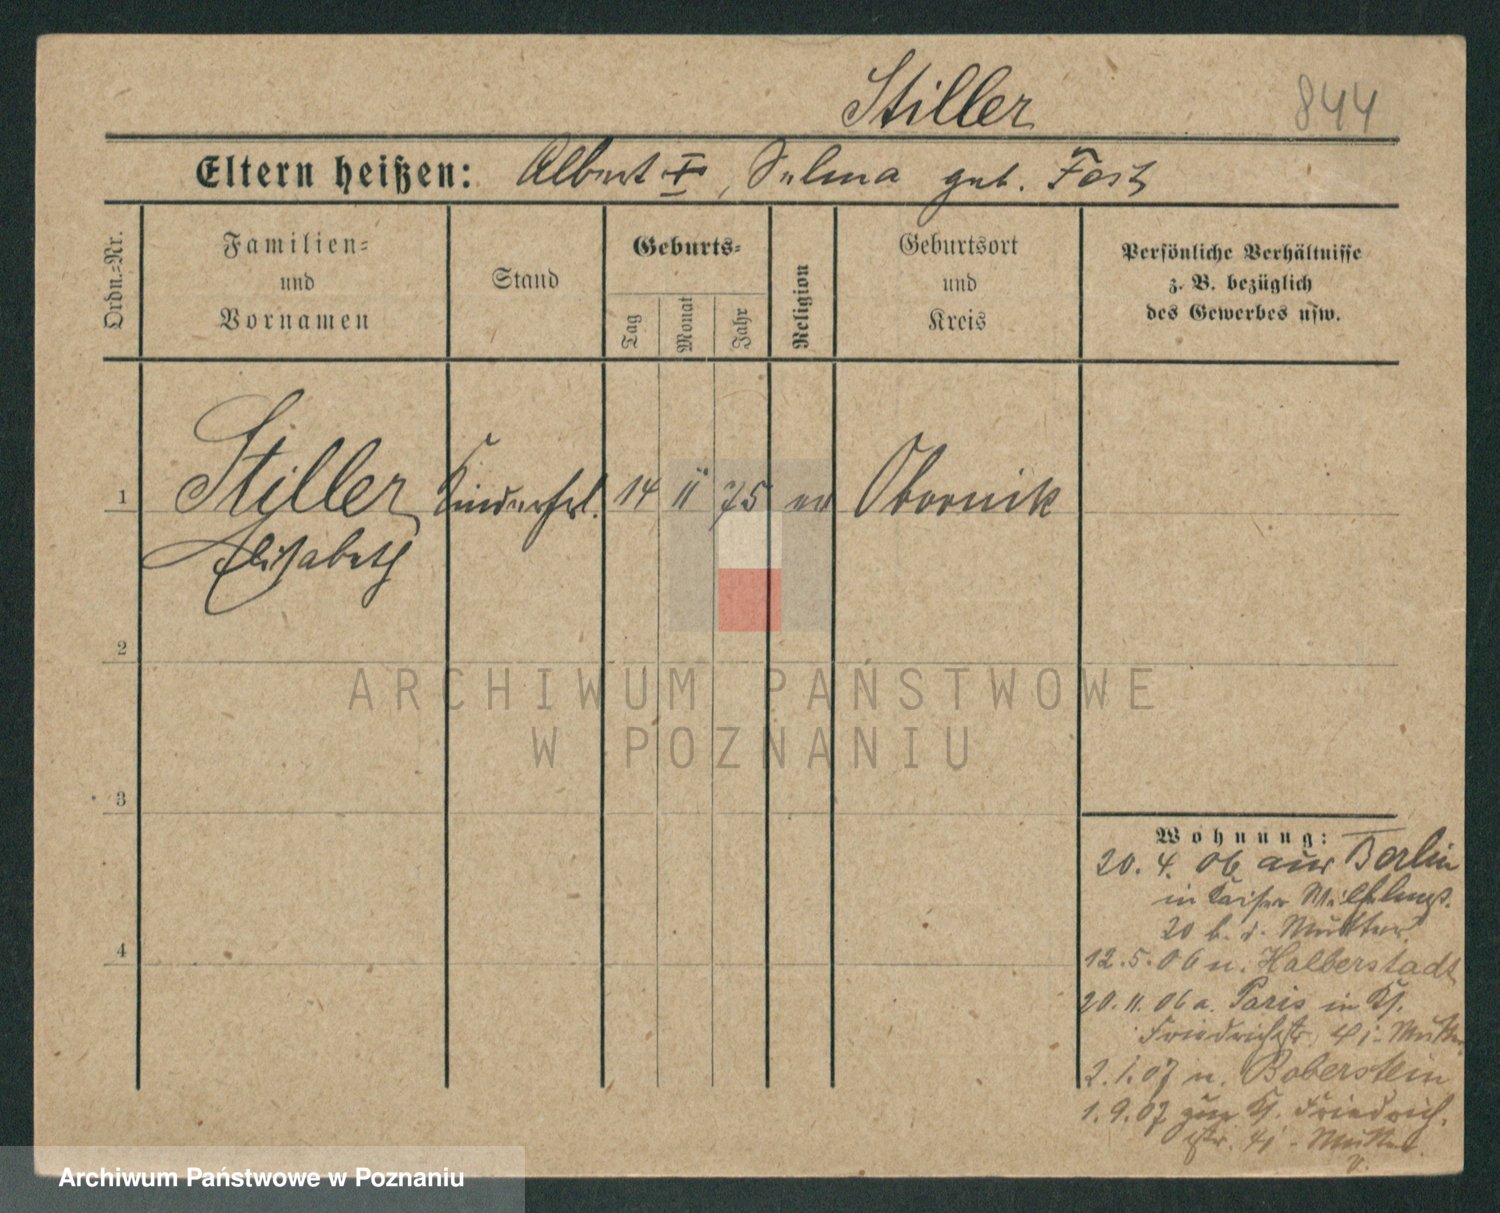 Stiller
844
Eltern heißen: Albert †, Selma geb. Fest
Ordn.=Nr.
Familien=
und
Vornamen
Stand
Geburts=
Tag
Monat
Jahr
Religion
Geburtsort
und
Kreis
Persönliche Verhältnisse
z. B. bezüglich
des Gewerbes usw.
1 Stiller Kinderfrl. 14 11 75 ev Obornik
Elisabeth
2
3
4
ARCHIWUM PAŃSTWOWE
W POZNANIU
Wohnung:
20. 4. 06 aus Berlin
in Kaiser Wilhelmst.
20 b. d. Mutter
12. 5. 06 n. Halberstadt
20. 11. 06 a. Paris in
Friedrichstr. Mutter
2. 1. 07 n. Boberstein
1. 9. 07 Friedrich
str. Mutter
Archiwum Państwowe w Poznaniu